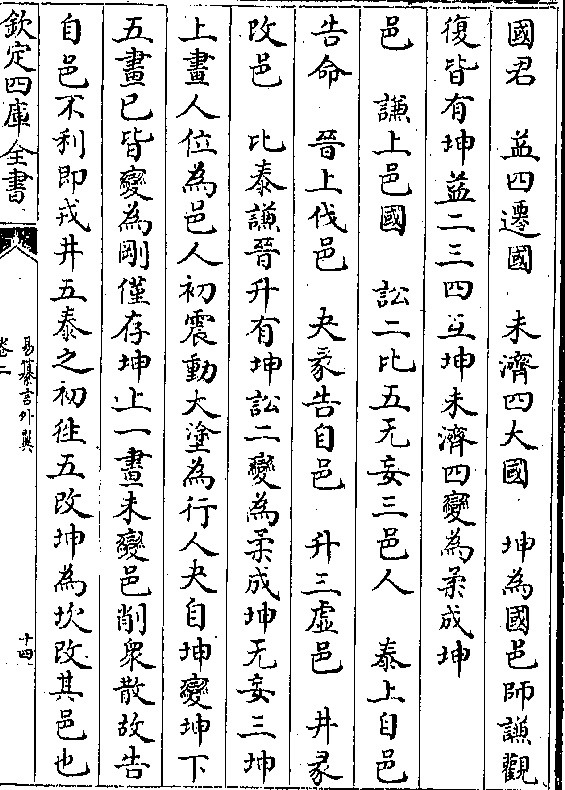 國君　益四遷國　未濟四大國　坤為國邑師謙觀
復皆有坤益二三四互坤未濟四變為柔成坤
邑　謙上邑國　訟二比五无妄三邑人　泰上自邑
告命　晉上伐邑　夬彖告自邑　升三虛邑　井彖
改邑　比泰謙晉升有坤訟二變為柔成坤无妄三坤
上畫人位為邑人初震動大塗為行人夬自坤變坤下
五畫已皆變為剛僅存坤上一畫未變邑削衆散故告
自邑不利即戎井五泰之初徃五改坤為坎改其邑也
欽定四庫全書
易纂言外翼
卷二
十四